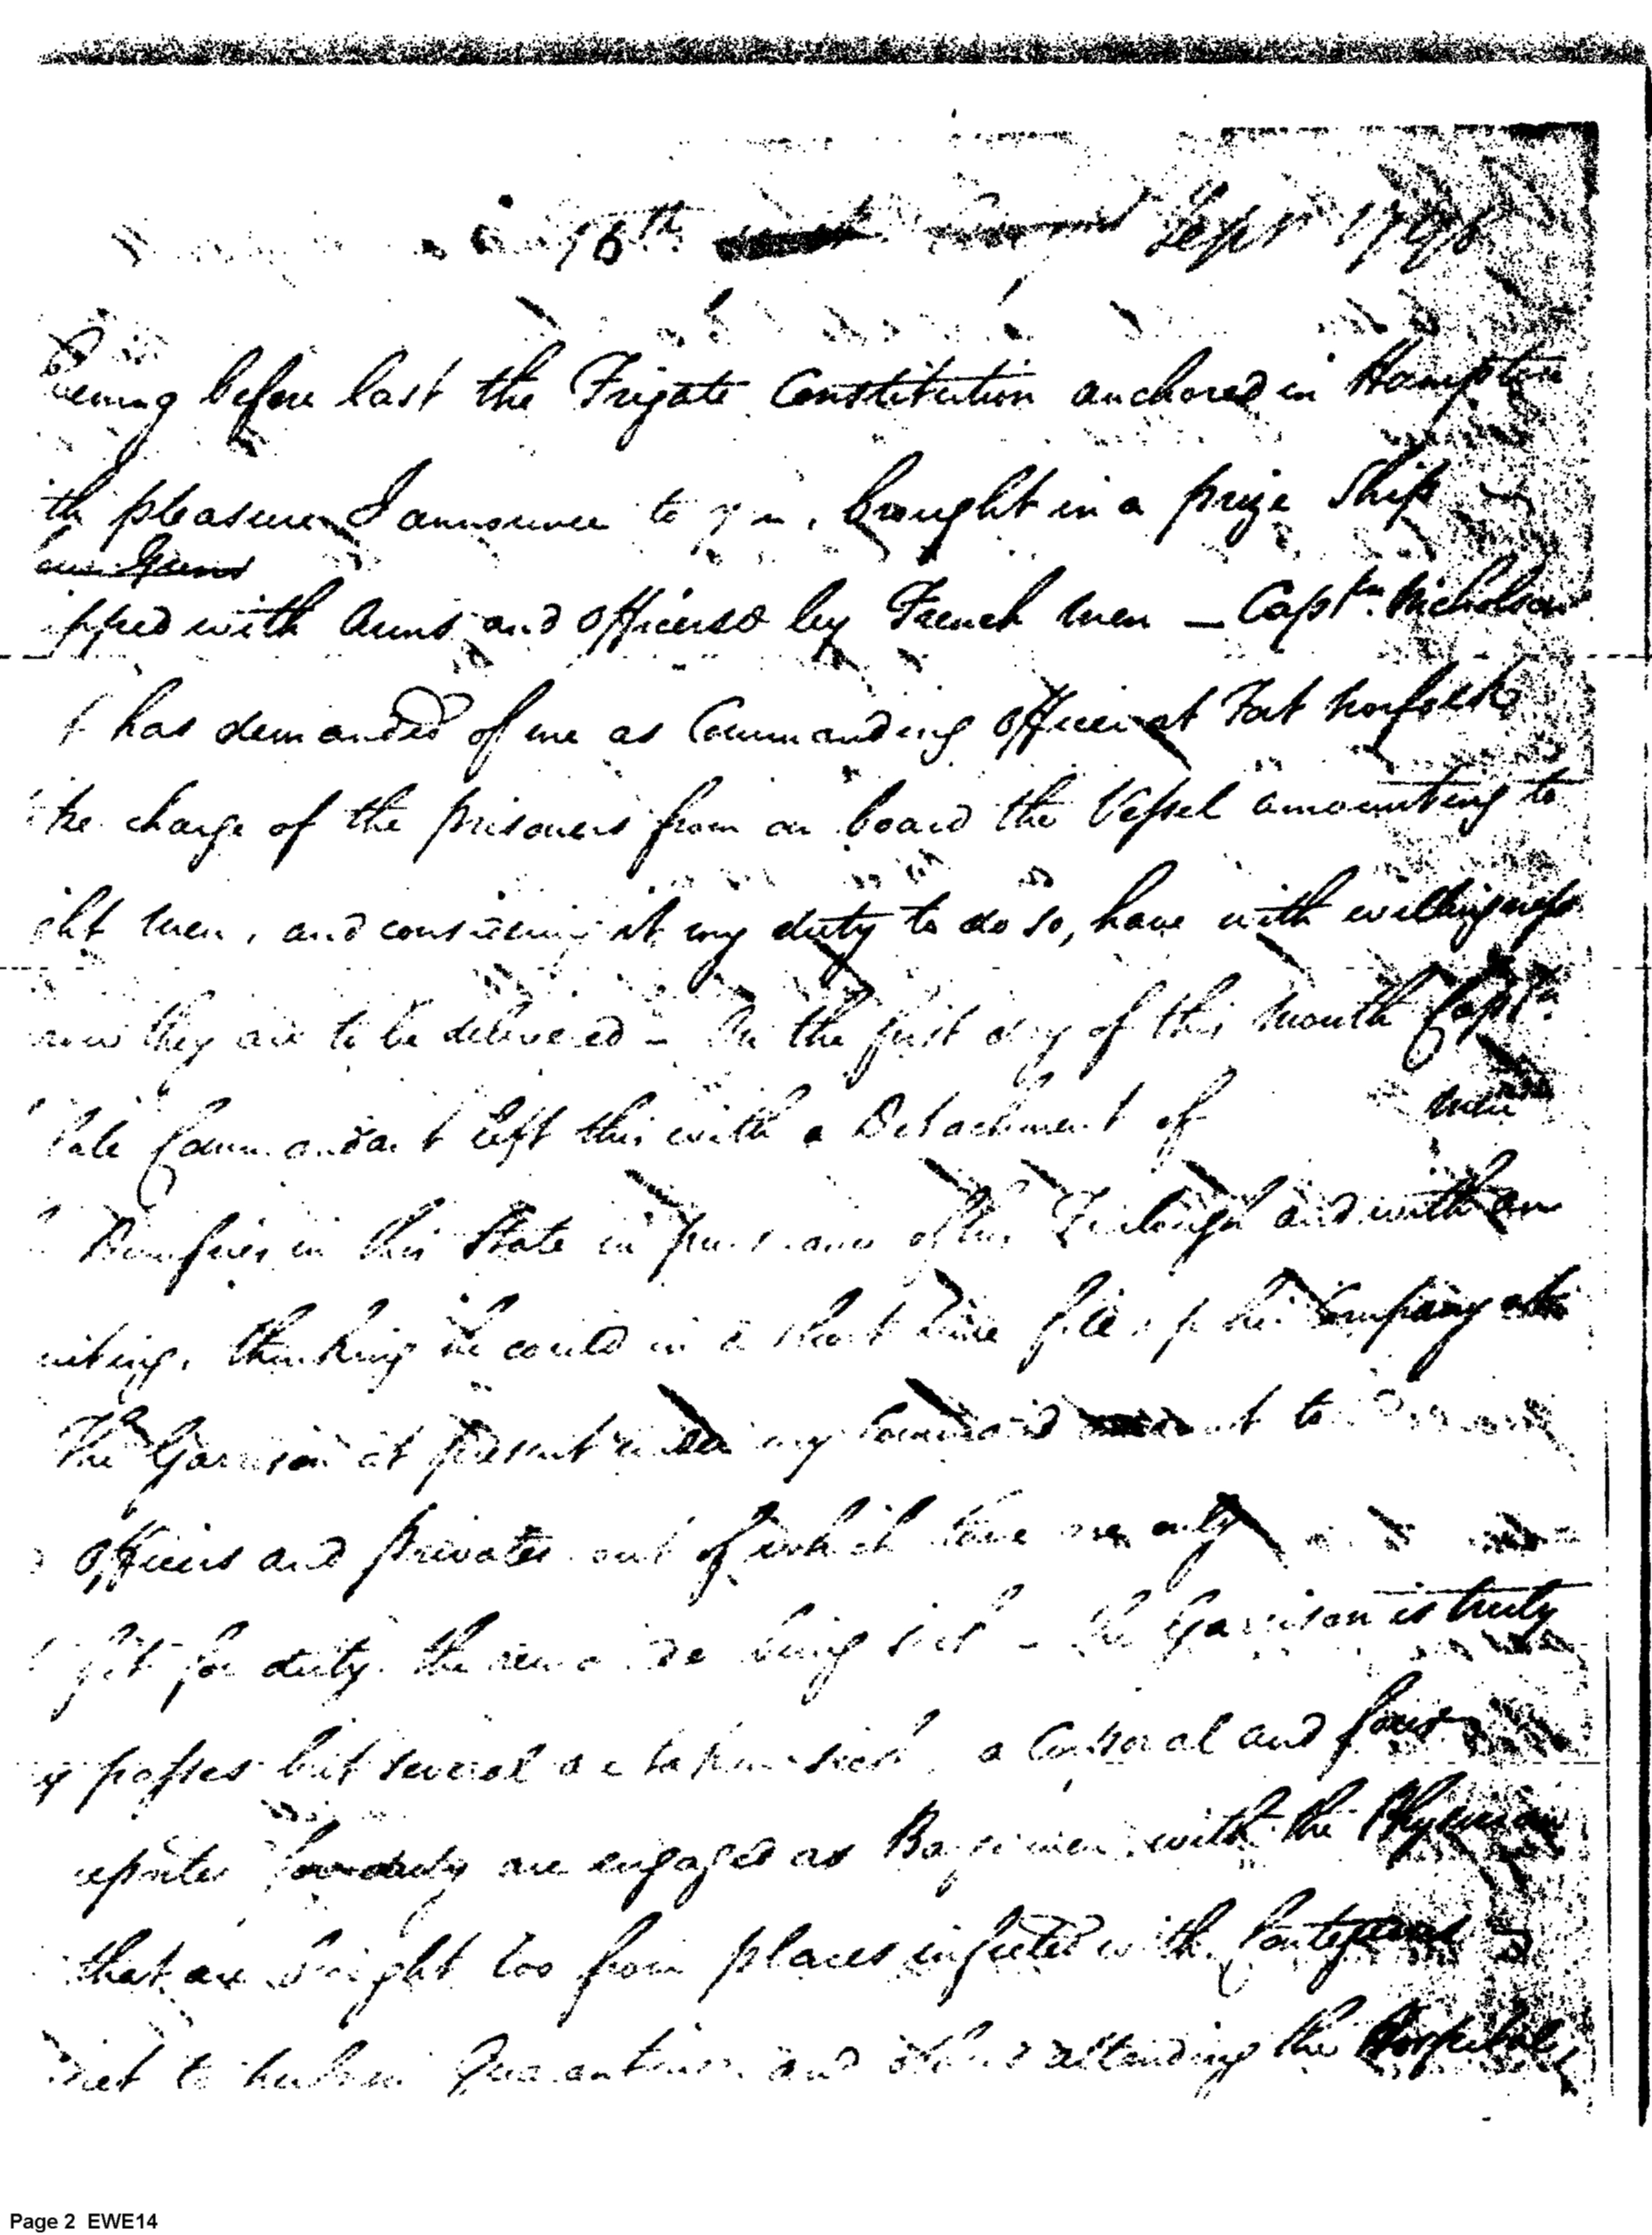 16th Sept 1798
before last the Frigate Constitution anchored in Hampton
pleasure I announce to you, brought in a prize Ship
Guns
with Arms and Officered by French men — Captn. Nicholson
has demanded of me as Commanding Officer at Fort Norfolk
the charge of the prisoners from on board the Vessel amounting to
men, and considering it my duty to do so, have with willingness
they are to be delivered – On the first day of this Month Captn.
late Commandant left this with a Detachment of men
Dumfries in this State in pursuance of his Furlough and with an
thinking he could in a short time fill up his Company
The Garrison at present under my Command to
Officers and privates out of which there are only
fit for duty. the remainder being sick – The Garrison is truly
passes but several are taken sick, a Corporal and four
reported for duty are engaged as Bargemen with the Physician
that are brought too from places infected with Contagious
to perform Quarantine. and others attending the Hospital
Page 2 EWE14